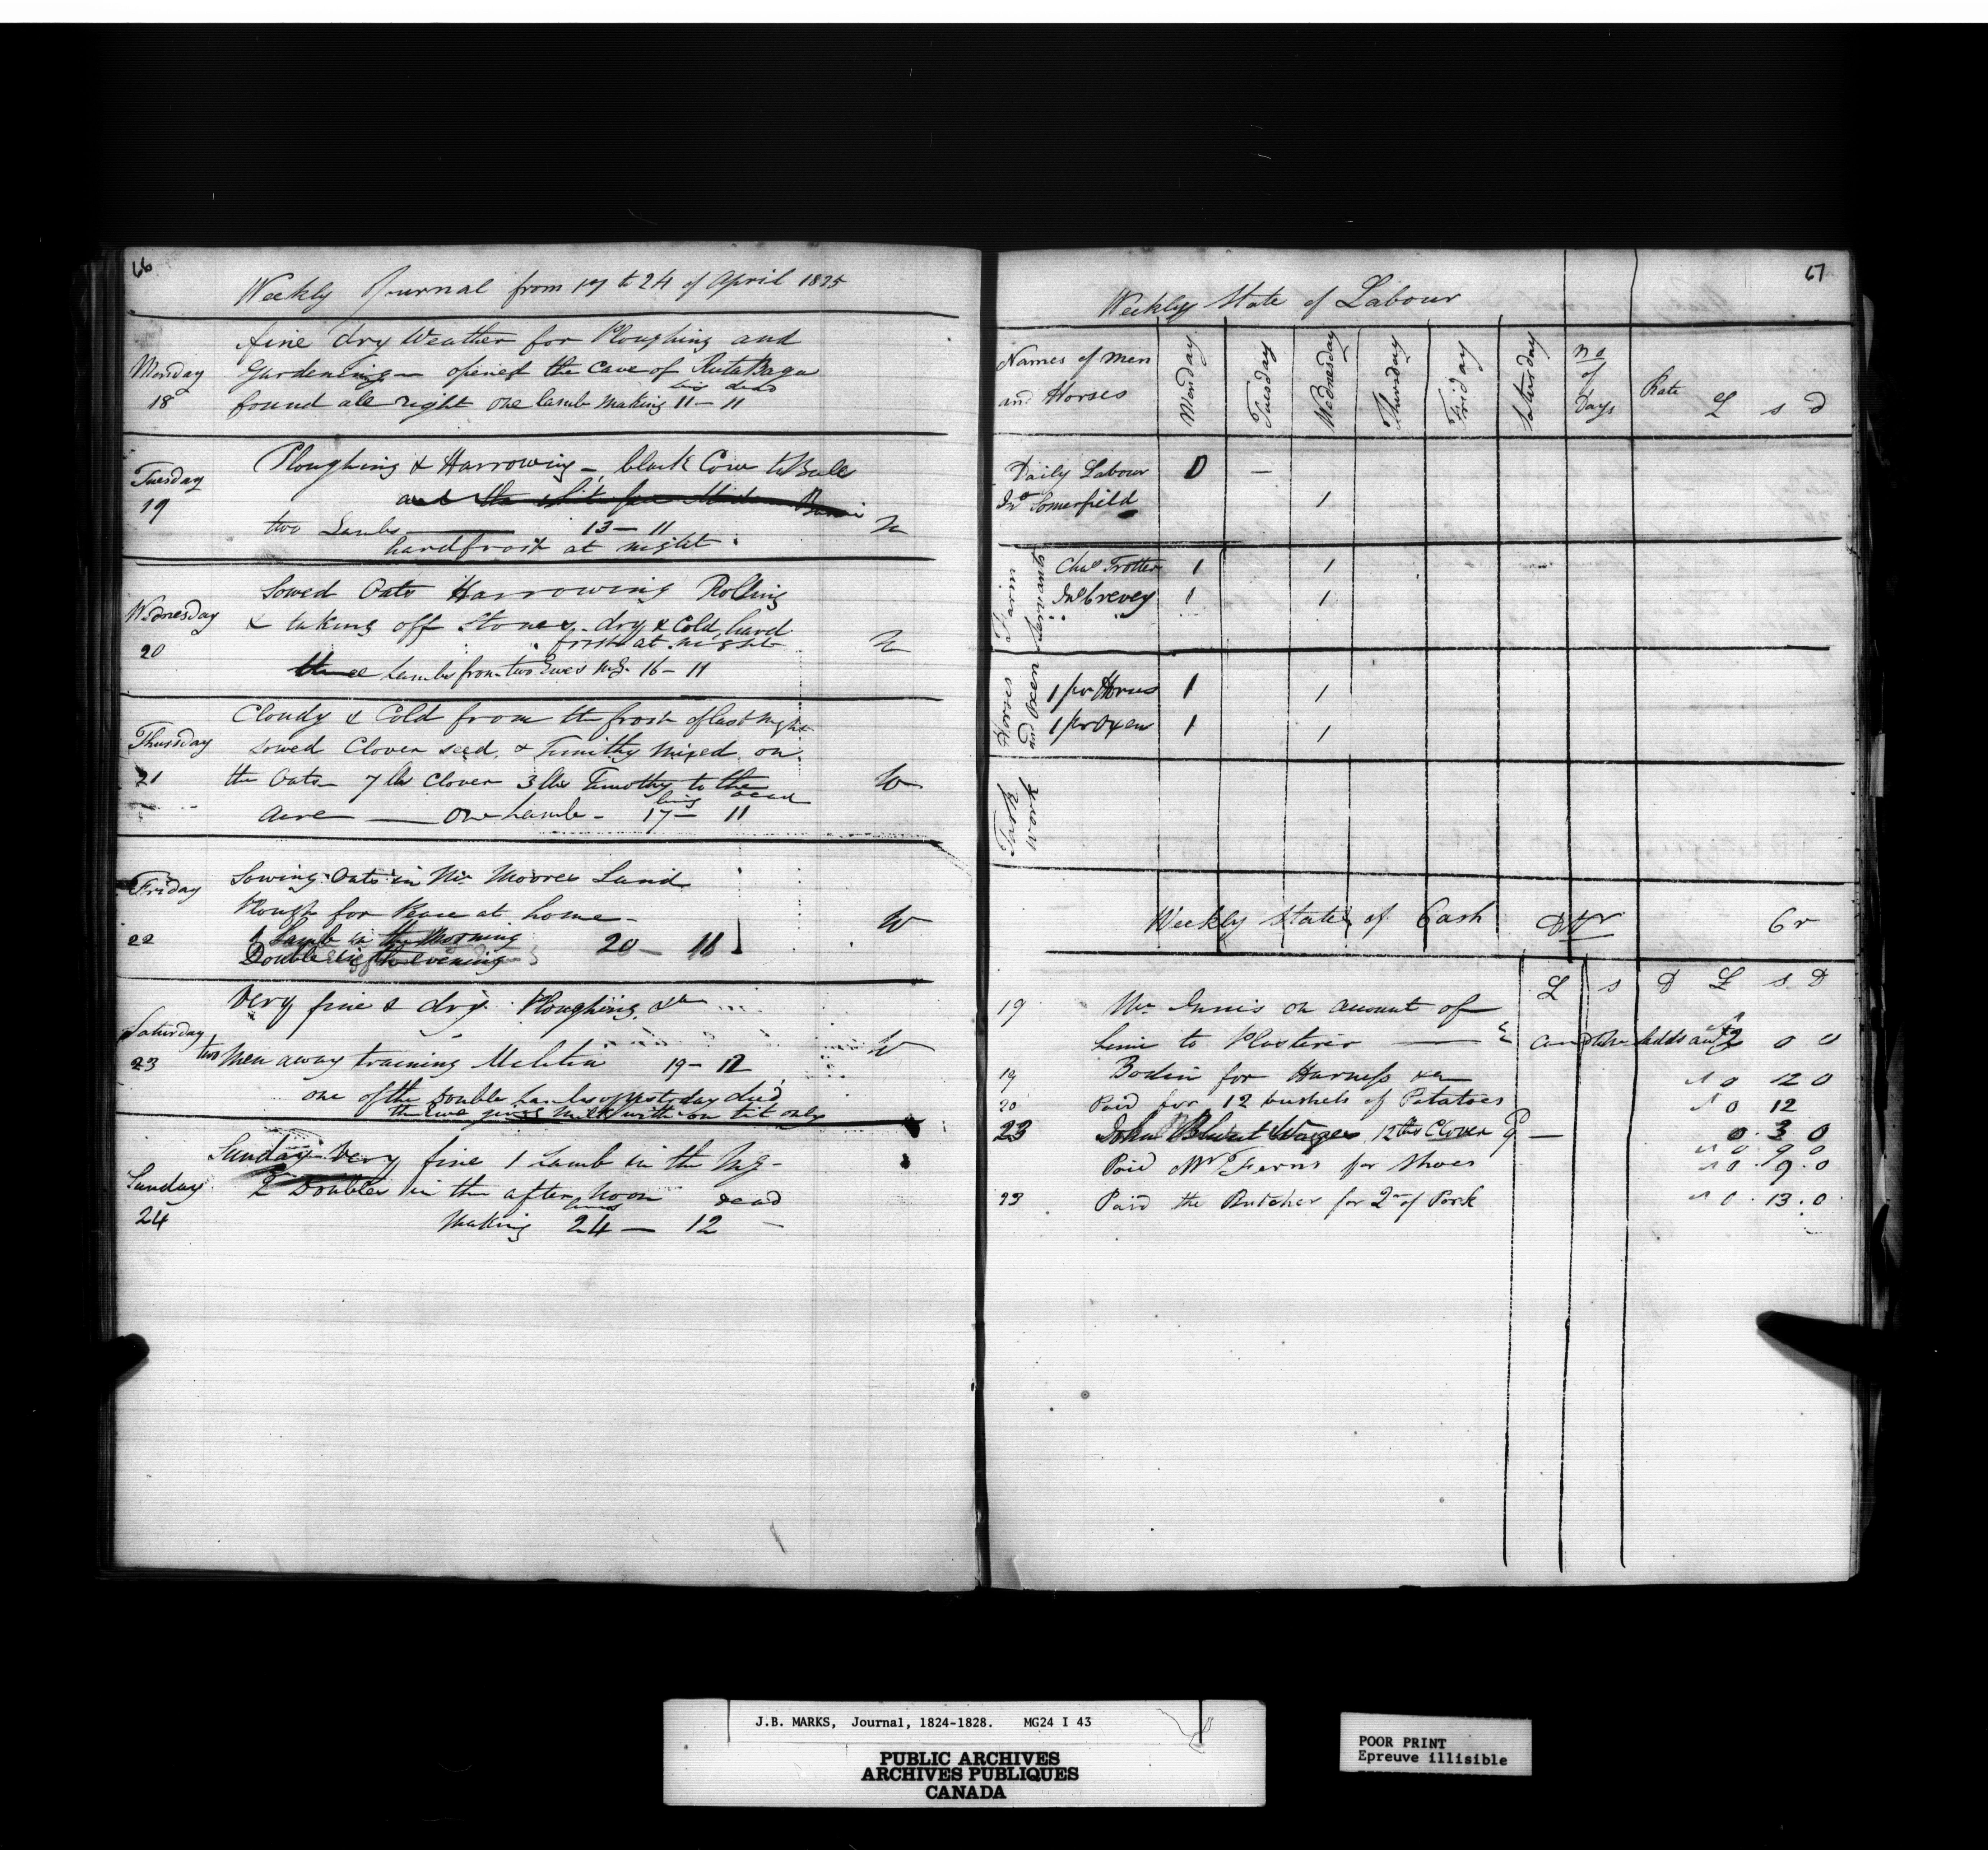 66
Weekly Journal from 17 to 24 of April 1825
Monday
18
fine dry Weather for Ploughing and
Gardening — opened the Cave of RutaBaga
found all right one lamb making 11 — 11
living dead
Tuesday
19
Ploughing & Harrowing — black Cow to Bull
two Lambs 13 — 11
hard frost at night
Wednesday
20
Sowed Oats Harrowing Rolling
& taking off Stones — dry & Cold, hard
frost at night
three Lambs from two Ewes 16 — 11
Thursday
21
Cloudy & Cold from the frost of last night
sowed Clover seed & Timithy mixed on
the Oats — 7 lbs Clover 3 lbs Timothy to the
acre — One Lamb — 17 — 11
living dead
Friday
22
Sowing Oats in Mr. Moores Land
Plough for Pease at home —
1 Lamb in the Morning
Double in the evening 20 — 11
Saturday
23
Very fine & dry. Ploughing &c
two Men away training Melitia 19 — 12
one of the Double Lambs of yesterday died
the Ewe gives milk with one tit only
Sunday
24
Sunday Very fine 1 Lamb in the Mg —
2 Doubles in the after noon
Making 24 — 12 —
living dead
67
Weekly State of Labour
Names of men
and Horses
Monday
Tuesday
Wednesday
Thursday
Friday
Saturday
no
of
Days
Rate
£ s d
Daily Labour 0 —
Jno Somerfield 1
Farm Servants
Chas Trotter 1 1
Jno Crevey 1 1
Horses and Oxen
1 pr Horses 1 1
1 pr Oxen 1 1
Task Work
Weekly State of Cash Dr Cr
£ s D £ s D
19 Mr. Innis on account of
Lime to Plasterer — 2 0 0
19 Bodin for Harness &c 0 12 0
20 Paid for 12 bushels of Potatoes 0 12
23 John Wages 12 lbs Clover 0 3 0
0 9 0
Paid Mr Ferns for Shoes 0 9 0
23 Paid the Butcher for 2 of Pork 0 13 0
J.B. MARKS, Journal, 1824-1828. MG24 I 43
PUBLIC ARCHIVES
ARCHIVES PUBLIQUES
CANADA
POOR PRINT
Epreuve illisible